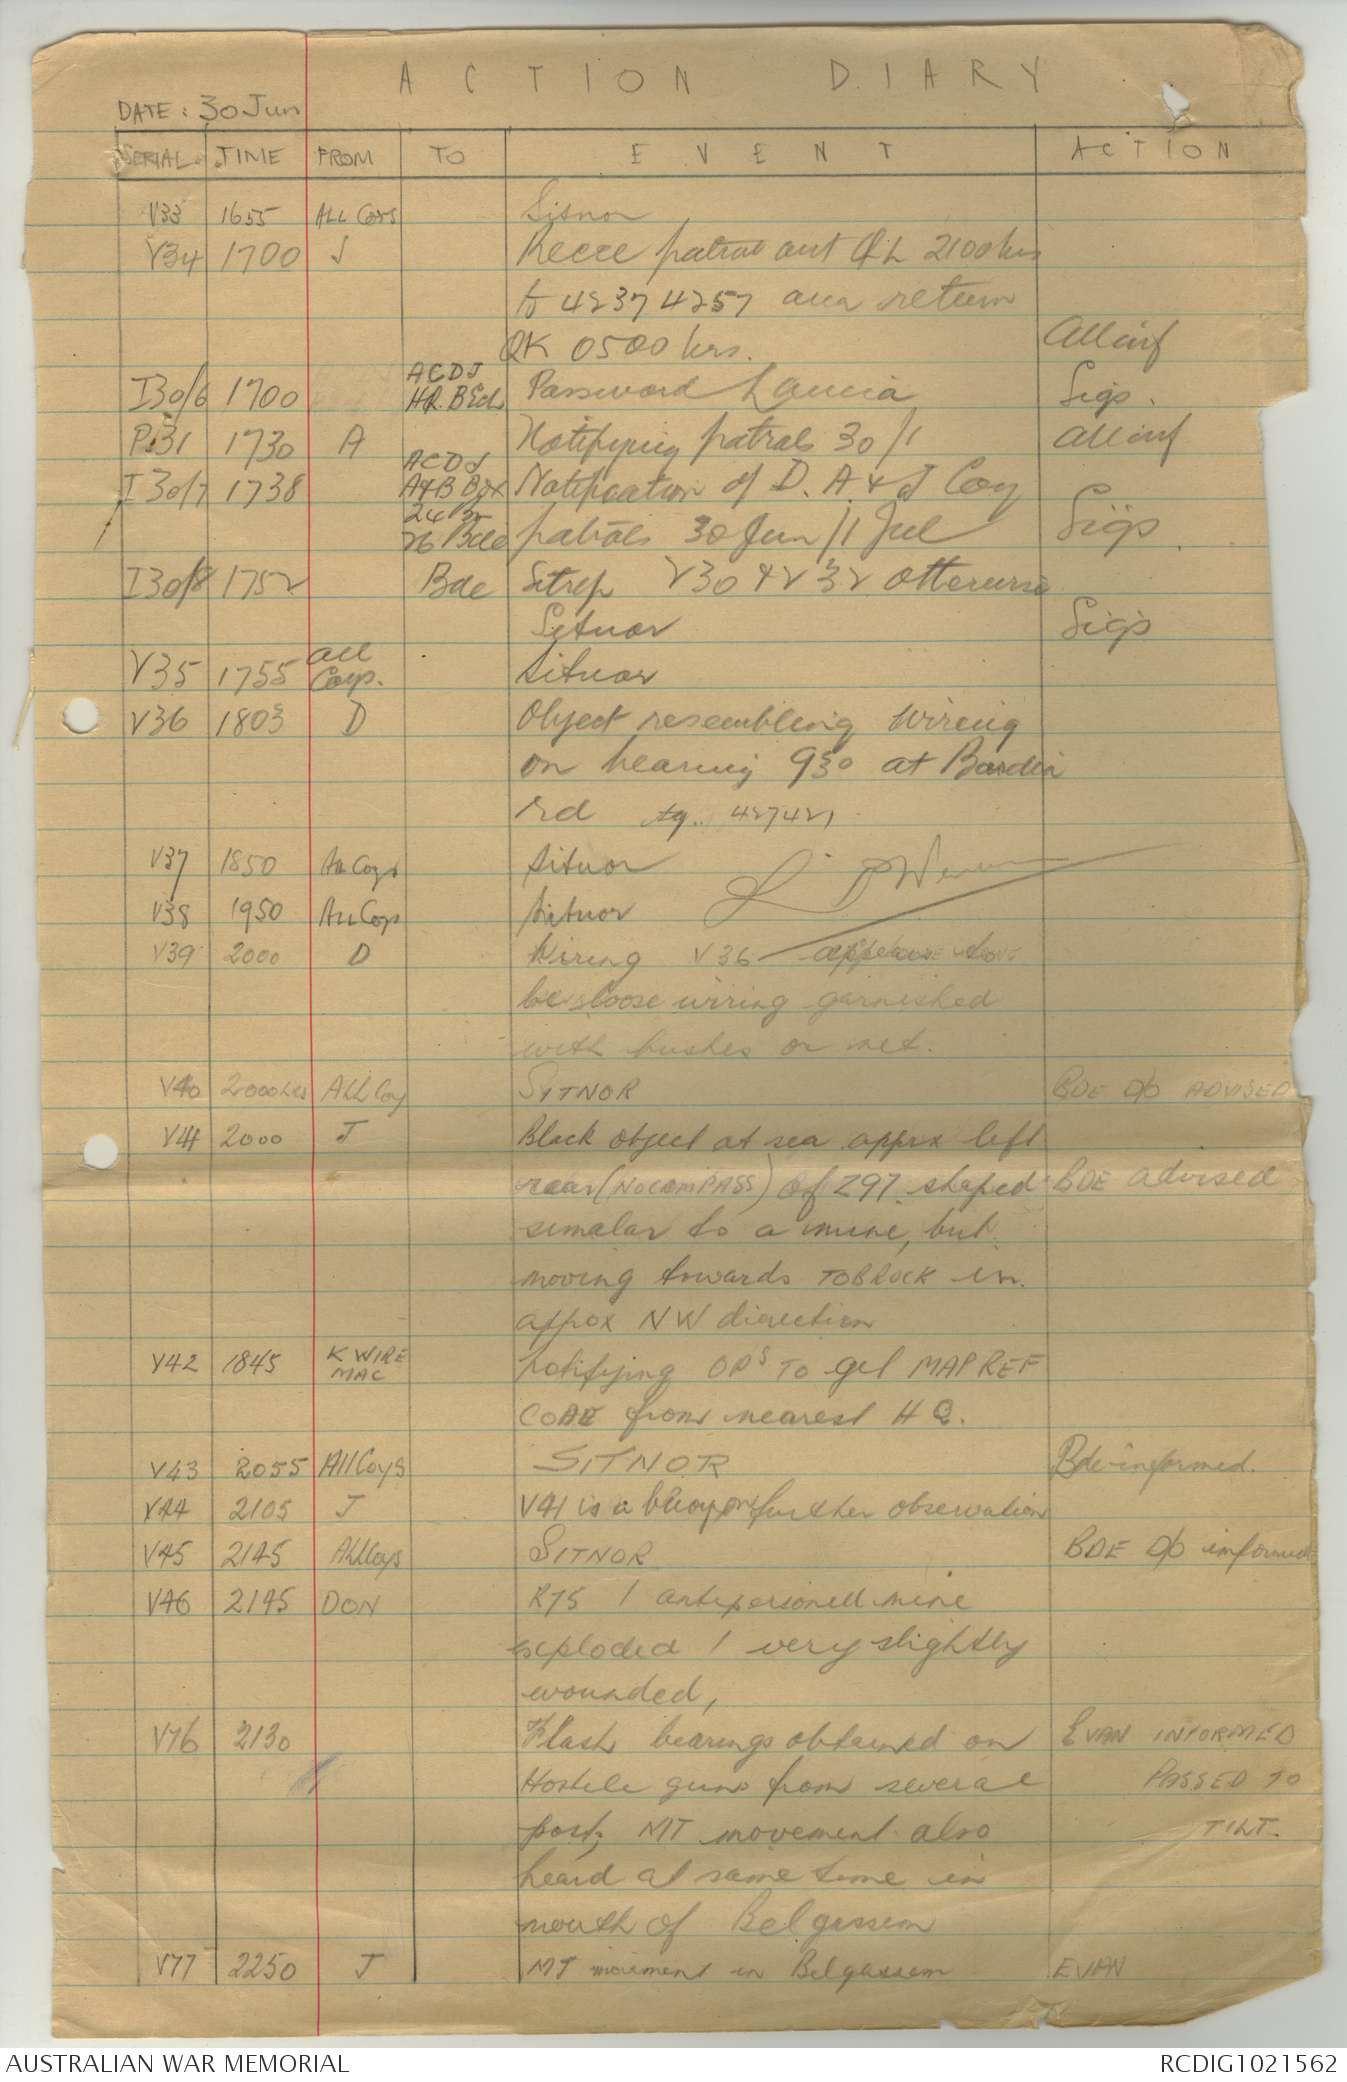 ACTION DIARY
DATE: 30 Jun
SERIAL TIME FROM TO EVENT ACTION
V33 1655 ALL Coys Sitnor
V34 1700 J Recce patrol out QL 2100 hrs
to 42374257 area return
QK 0500 hrs. All inf
I30/6 1700 ACDJ HR. BEch Password Lancia Sigs.
P.31 1730 A Notifying patrols 30/1 all inf
I30/7 1738 ACDJ A&B Notification of D. A & J Coy
24 26 Bde patrols 30 Jun/1 Jul Sigs
I30/8 1752 Bde Sitrep V30 & V32 otherwise
Situor Sigs
V35 1755 all Coys. Situor
V36 1803 D Object resembling wiring
on bearing 930 at Bardia
rd 427421
V37 1850 All Coys Situor
V38 1950 All Coys Situor
V39 2000 D Wiring V36 appears to
be loose wiring garnished
with bushes or net.
V40 2000hrs ALL Coy SITNOR BDE D/O ADVISED
V41 2000 J Black object at sea apprx left
rear (NO COMPASS) of Z97 shaped BDE advised
simalar to a mine, but
moving towards TOBRUCK in
appox NW direction
V42 1845 K WIRE MAC notifying OPs TO get MAP REF
CODE from nearest HQ.
V43 2055 All Coys SITNOR Bde informed.
V44 2105 J V41 is a buoy on further observation
V45 2145 All Coys SITNOR BDE D/O informed
V46 2145 DON R75 1 antipersonell mine
exploded 1 very slightly
wounded,
V76 2130 Flash bearings obtained on EVAN INFORMED
Hostile guns from several PASSED TO
posts, MT movement also TILT.
heard at same time in
mouth of Belgassem
V77 2250 J MT movement in Belgassem EVAN
AUSTRALIAN WAR MEMORIAL RCDIG1021562